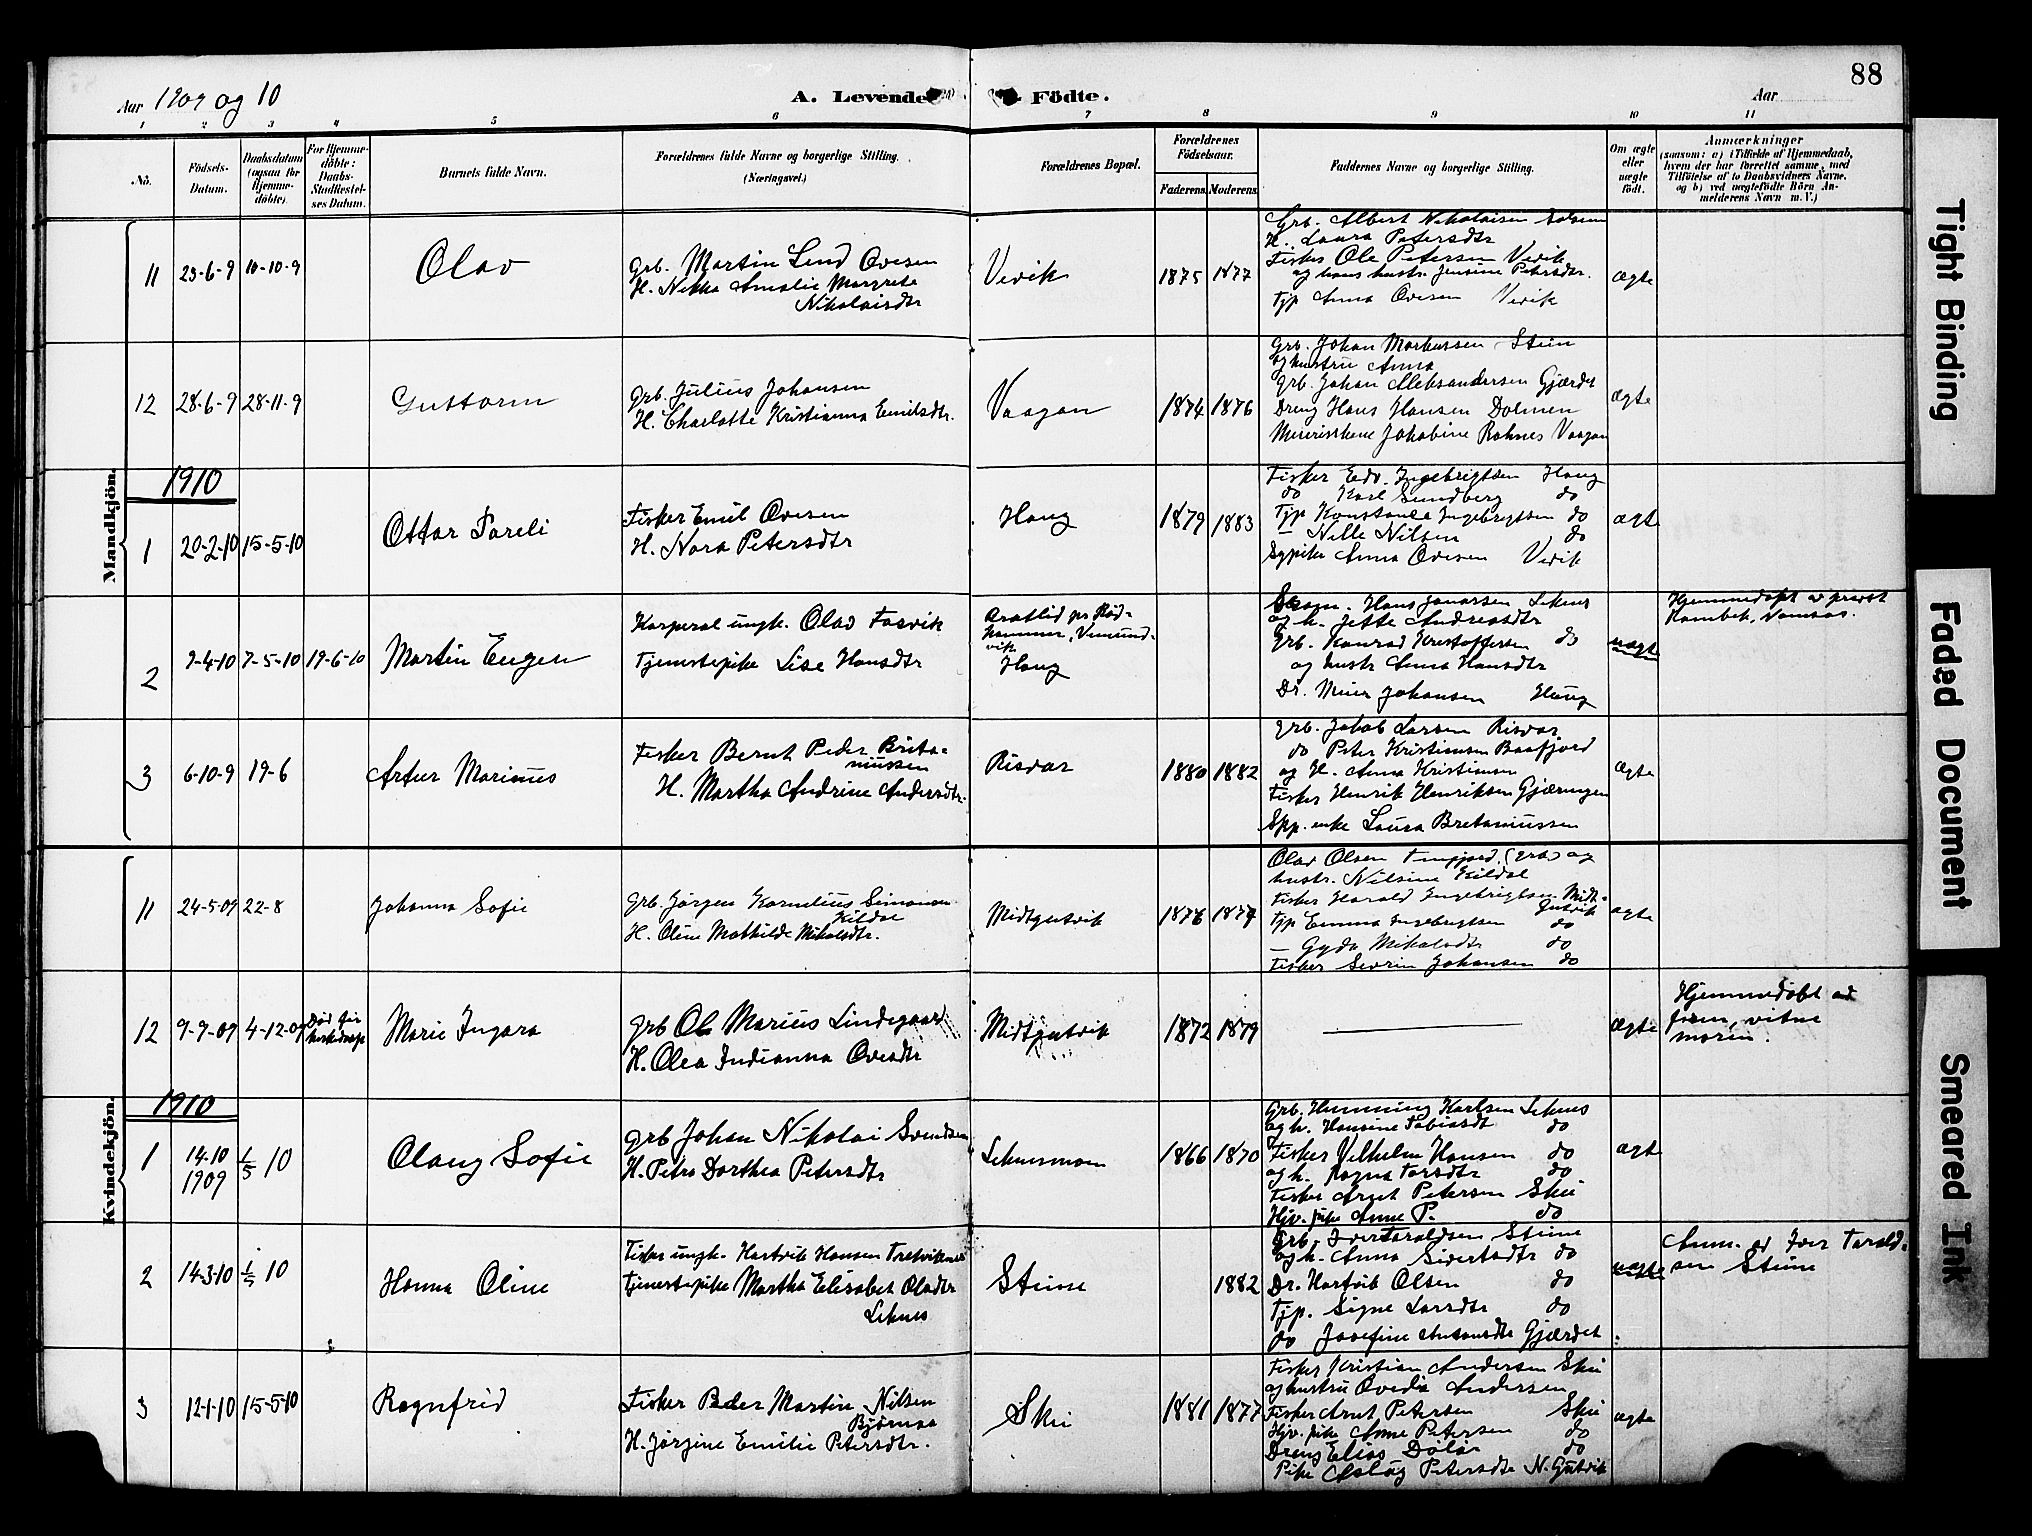 88
Aar 1909 og 10
A. Levende Födte.
Aar
1 2 3 4 5 6 7 8 9 10 11
No.
Födsels-Datum.
Daabsdatum (ogsaa for Hjemme-döbte).
For Hjemme-döbte: Daabs-Stadfæstel-ses Datum.
Barnets fulde Navn.
Forældrenes fulde Navne og borgerlige Stilling. (Næringsvei.)
Forældrenes Bopæl.
Forældrenes Födselsaar.
Faderens. Moderens.
Faddernes Navne og borgerlige Stilling.
Om ægte eller uægte födt.
Anmærkninger
(saasom: a) i Tilfælde af Hjemmedaab, hvem der har forrettet samme, med Tilföielse af to Daabsvidners Navne, og b) ved uægtefödte Börn An-melderens Navn m. V.)
Mandkjön.
11 23-6-9 10-10-9 Olav
Grb. Martin Lind Ovesen
H. Nikka Amalie Margrete
Nikolaisdtr
Vevik 1875 1877
Grb. Albert Nikolaisen
H. Laura Petersdtr
Fisker Ole Petersen Vevik
og hans hustr. Jensine Petersdtr.
Tjp Anna Ovesen Vevik
ægte
12 28-6-9 28-11-9 Guttorm
Grb. Julius Johansen
H. Charlotte Kristianna Emilsdtr.
Vaagan 1874 1876
Grb. Johan Markussen Stein
og hustru Anna
Grb. Johan Aleksandersen Gjærdet
Dreng Hans Hansen Dolmen
Jakobine Rohnes Vaagan
ægte
1910
1 20-2-10 15-5-10 Ottar Pareli
Fisker Emil Ovesen
H. Nora Petersdtr
Haug 1879 1883
Fisker Edv. Ingebrigtsen Haug
do Karl Sundberg do
Tjp Konstanse Ingebrigtsen do
— Nille Nilsen do
Sypike Anna Ovesen Vevik
ægte
2 9-4-10 7-5-10 19-6-10 Martin Eugen
Korporal ungk. Olav Fosvik
Tjenestepike Lise Hansdtr
Haug
Hans Jonassen Leknes
og h. Jette Andreasdtr
Grb. Konrad Kristoffersen do
og hustr Anna Hansdtr
Dr. Meier Johansen Haug
uægte
Hjemmedøpt av prest
Kambek, Namsos.
3 6-10-9 19-6 Artur Marinus
Fisker Bernt Peder Brita-
nussen
H. Martha Andrine Andersdtr.
Risvær 1880 1882
Grb. Jakob Larsen Risvær
do Peter Kristiansen Baafjord
og H. Anna Kristiansen
Fisker Henrik Henriksen Gjæringen
enke Laura Bretanussen
ægte
Kvindekjön.
11 24-5-09 22-8 Johanna Sofie
Grb. Jörgen Kornelius Simonsen
Kildal
H. Oline Mathilde Mikalsdtr.
Midtgutvik 1876 1879
Olav Olsen (grb) og
hustr. Nilsine Kildal
Fisker Harald Ingebrigtsen Midt-
gutvik
Tjp Emma Ingebrigtsen do
— Gyda Mikalsdtr do
Fisker Sevrin Johansen do
ægte
12 9-9-09 4-12-09 Død før
Marie Ingara
Grb Ole Marius Lindegaard
H. Olea Indianna Ovesdtr
Midtgutvik 1872 1879
ægte
Hjemmedøbt av
faren, vitne
moren.
1910
1 14-10 1909 1/5 10 Olaug Sofie
Grb Johan Nikolai Svendsen
H. Petra Dorthea Petersdtr
Leknesmoen 1866 1870
Grb. Henning Karlsen Leknes
og h. Hansine Tobiasdt do
Fisker Vilhelm Hansen do
og h. Ragna Torsdtr do
Fisker Arnt Petersen Skei
Hjv. pike Anne P. do
ægte
2 14-3-10 1/5 10 Hanna Oline
Fisker ungk. Hartvik Hansen
Tjenestepike Martha Elisabet Olsdtr
Leknes
Steine 1882
Grb. Iver Taraldsen Steine
og h. Anna Sivertsdtr do
Dr. Hartvik Olsen do
Tjp. Signe Larsdtr do
do Josefine Antonsdtr Gjærdet
uægte
Anm. av Iver Tarald-
sen Steine
3 12-1-10 15-5-10 Ragnfrid
Fisker Peder Martin Nilsen
Bjørnaa
H. Jörgine Emilie Petersdtr.
Skei 1881 1877
Fisker Kristian Andersen Skei
og hustru Ovedia Andersen
Fisker Arnt Petersen Skei
Hjv. pike Anne Petersen do
Dreng Elias Dolar do
Pike Aslaug Petersdtr N. Gutvik
ægte
Tight Binding
Faded Document
Smeared Ink